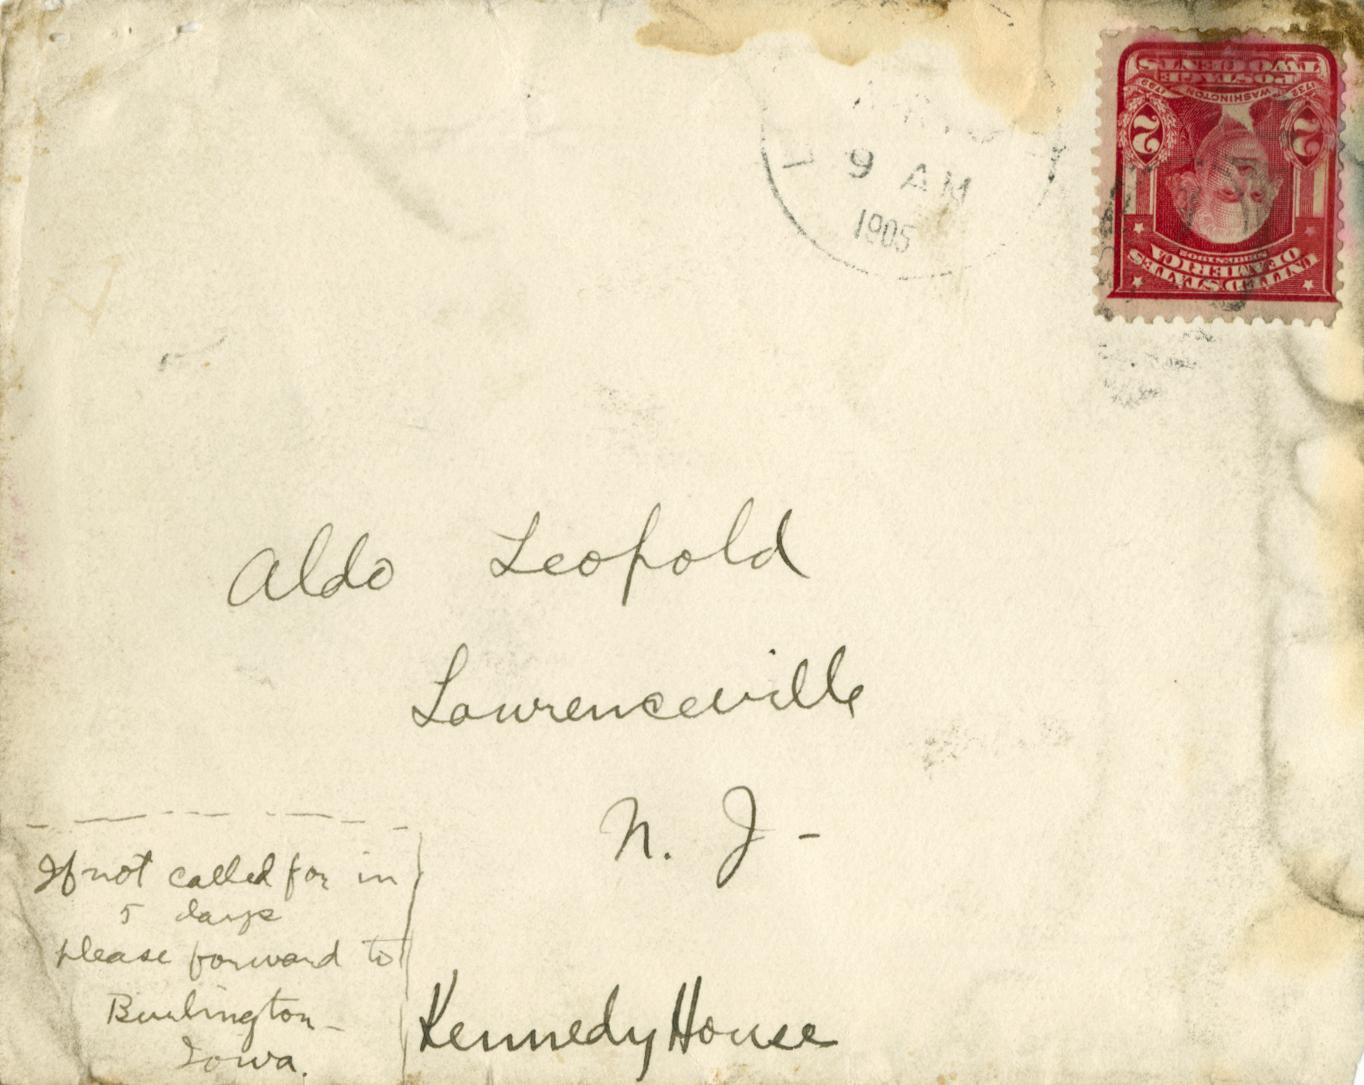 9 AM
1905
TWO CENTS
POSTAGE
1732 WASHINGTON 1799
2 2
UNITED STATES
OF AMERICA
Aldo Leopold
Lawrenceville
N. J -
If not called for in
5 days
please forward to
Burlington -
Iowa.
Kennedy House